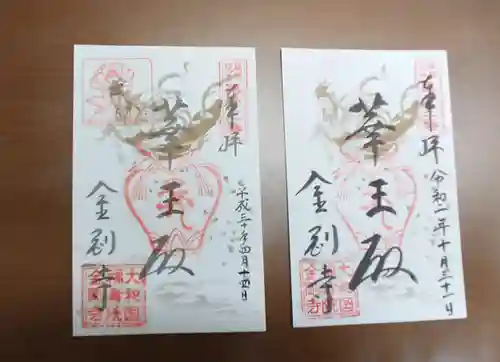 奉拝
華王殿
金剛寺
平成三十年四月十四日
大和国
金剛寺
奉拝
華王殿
金剛寺
令和一年十月三十一日